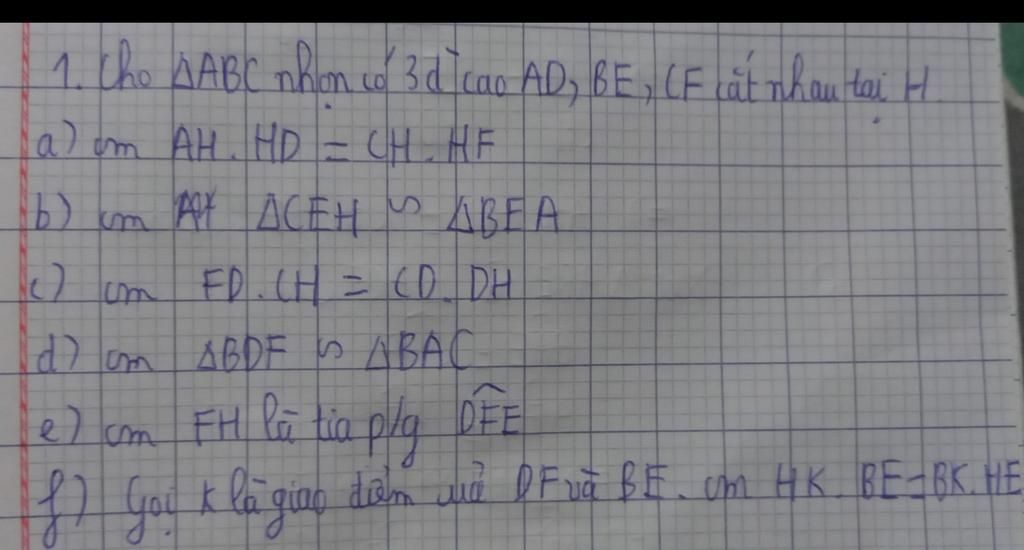 1. Cho ΔABC nhọn có 3 đ̀ cao AD, BE, CF cắt nhau tại H
a) cm AH. HD = CH. HF
b) cm ΔCEH ∽ ΔBEA
c) cm FD. CH = CD. DH
d) cm ΔBDF ∽ ΔBAC
e) cm FH là tia p/g D͡FE
f) Gọi K là giao điểm của DF và BE. cm HK. BE=BK. HE